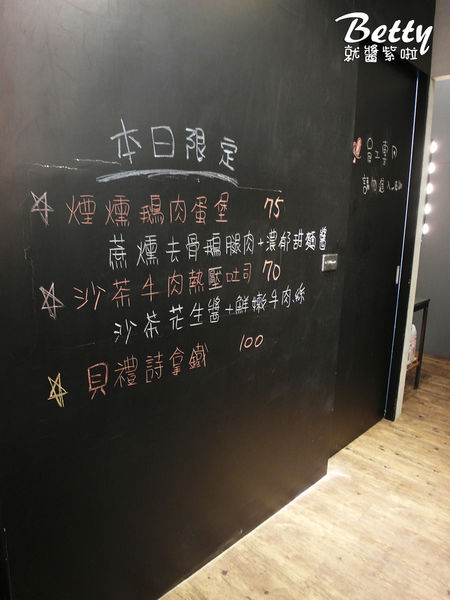 Betty
就醬紫啦
本日限定
煙燻鵝肉蛋堡 75
蔗燻去骨鵝腿肉+濃郁甜麵醬
沙茶牛肉熱壓吐司 70
沙茶花生醬+鮮嫩牛肉絲
貝禮詩拿鐵 100
員工專用
請勿進入